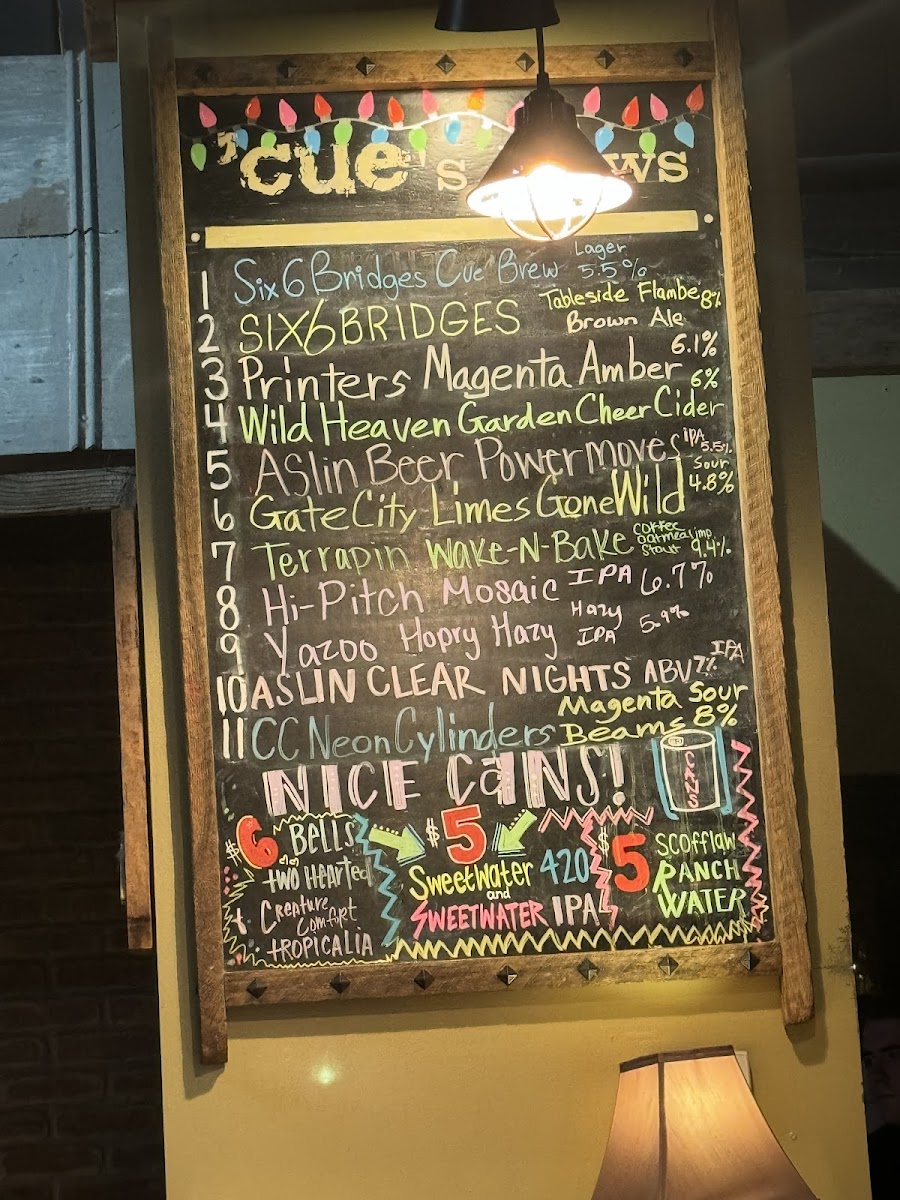 'cue's
1 Six6Bridges Cue Brew Lager 5.5%
2 SIX6BRIDGES Tableside Flambe 8% Brown Ale
3 Printers Magenta Amber 6.1%
4 Wild Heaven Garden Cheer Cider 6%
5 Aslin Beer Powermoves IPA 5.5%
6 Gate City Limes Gone Wild Sour 4.8%
7 Terrapin Wake-N-Bake Coffee Oatmeal imp Stout 9.4%
8 Hi-Pitch Mosaic IPA 6.7%
9 Yazoo Hopry Hazy Hazy IPA 5.9%
10 ASLIN CLEAR NIGHTS ABV 7% IPA
11 CC Neon Cylinders Magenta Sour Beams 8%
NICE CANS!
CANS
$6 BELLS
two HEARted
t. CREATURE
COMFORT
tROPICALIA
$5
Sweetwater 420
and
SWEETWATER IPA
$5 SCOFFLAW
RANCH
WATER